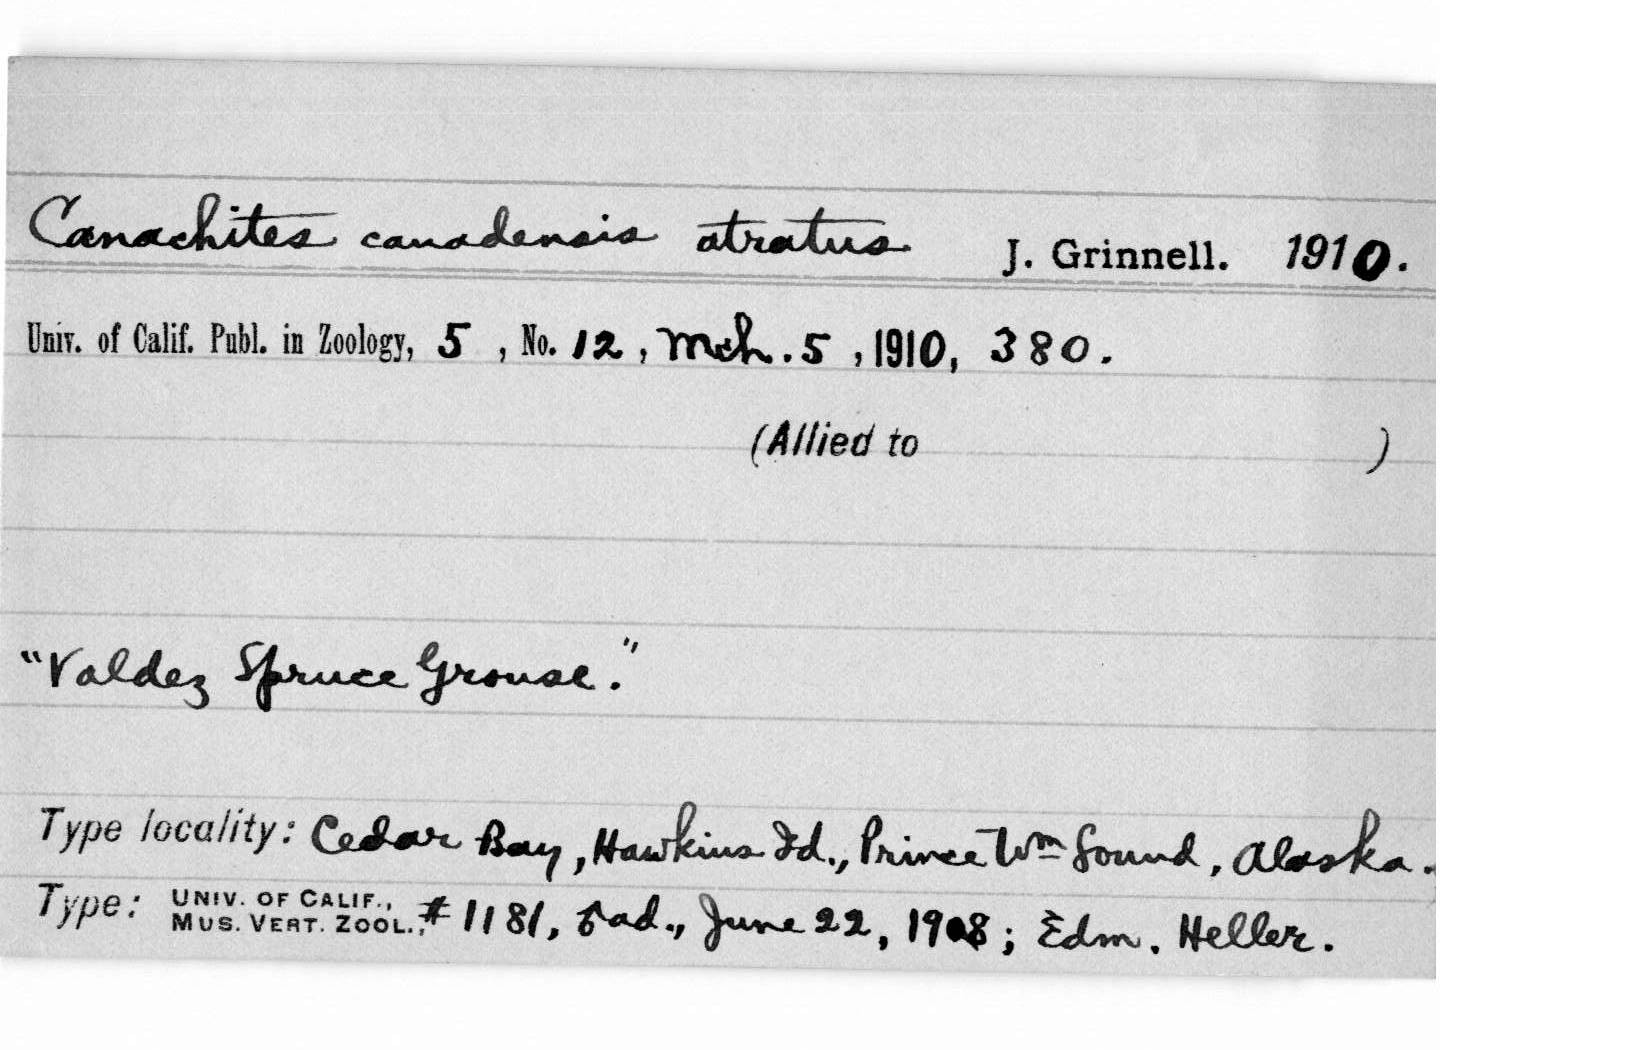 Canachites canadensis atratus J. Grinnell. 1910.
Univ. of Calif. Publ. in Zoology, 5, No. 12, Mch. 5, 1910, 380.
(Allied to )
"Valdez Spruce Grouse."
Type locality: Cedar Bay, Hawkins Id., Prince Wm Sound, Alaska.
Type: UNIV. OF CALIF.,
MUS. VERT. ZOOL., # 1181, ad., June 22, 1908; Edm. Heller.